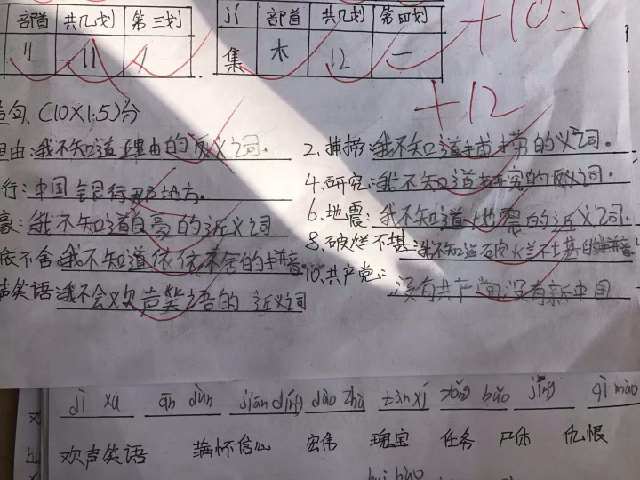 部首 共几划 第三划 jí 部首 共几划 第四划
11 集 木 12 一
+10.5
造句(10×1.5)分
+12
理由:我不知道理由的反义词。 2.拥挤:我不知道拥挤的义词。
行:中国银行 地方。 4.研究:我不知道研究的反义词。
豪:我不知道自豪的近义词 6.地震:我不知道地震的近义词。
依不舍:我不知道依依不舍的拼音 8.破烂不堪:我不知道破烂不堪的拼音
声笑语:我不会欢声笑语的近义词 10.共产党:没有共产党没有新中国
dì xu ān dùn jiān dìng dào zhǎ tàn xí zǒng bào jīng qì mào
欢声笑语 满怀信心 宏伟 瑰宝 任务 仇恨